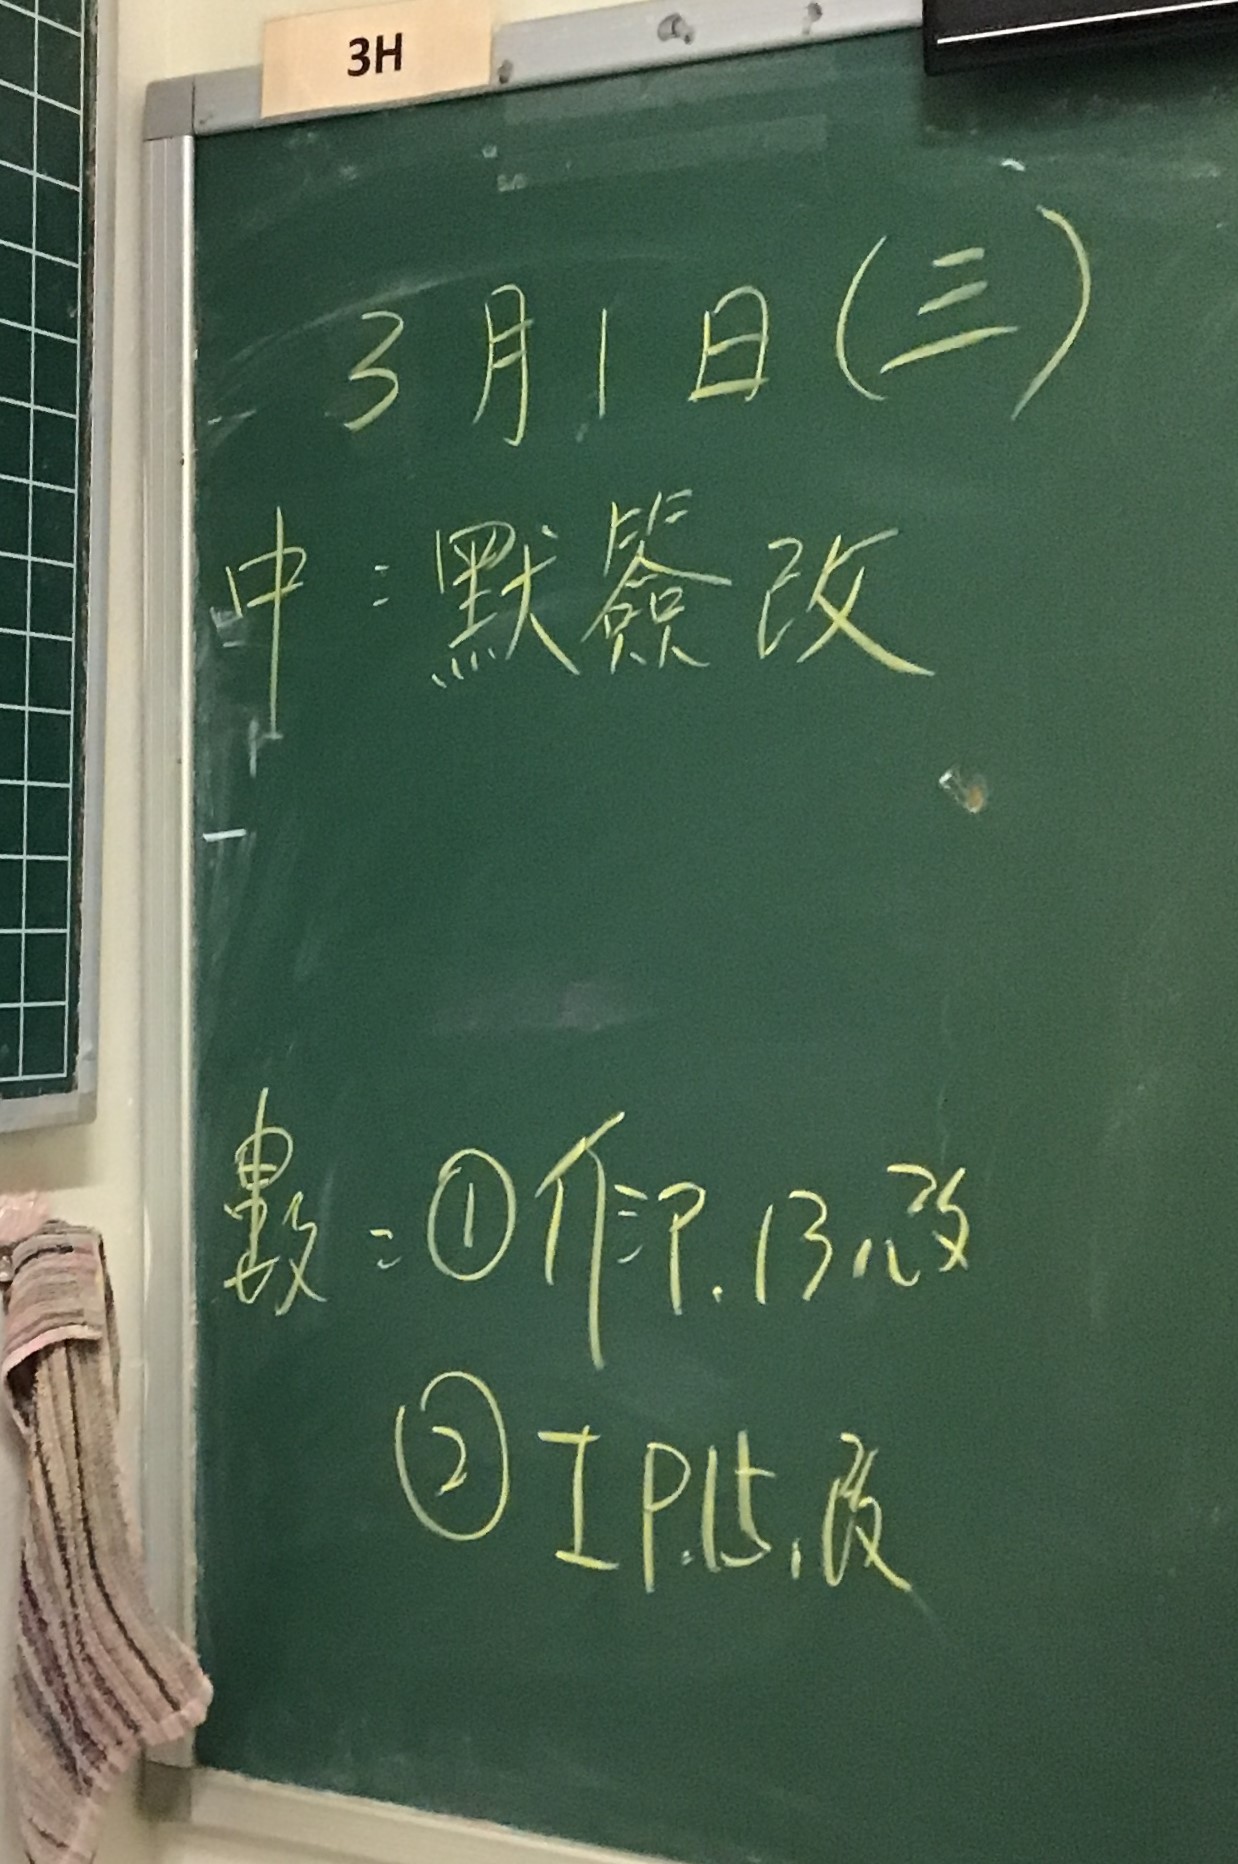 3H
3月1日(三)
中:默簽改
數:①作P.13,改
②工P.15,改